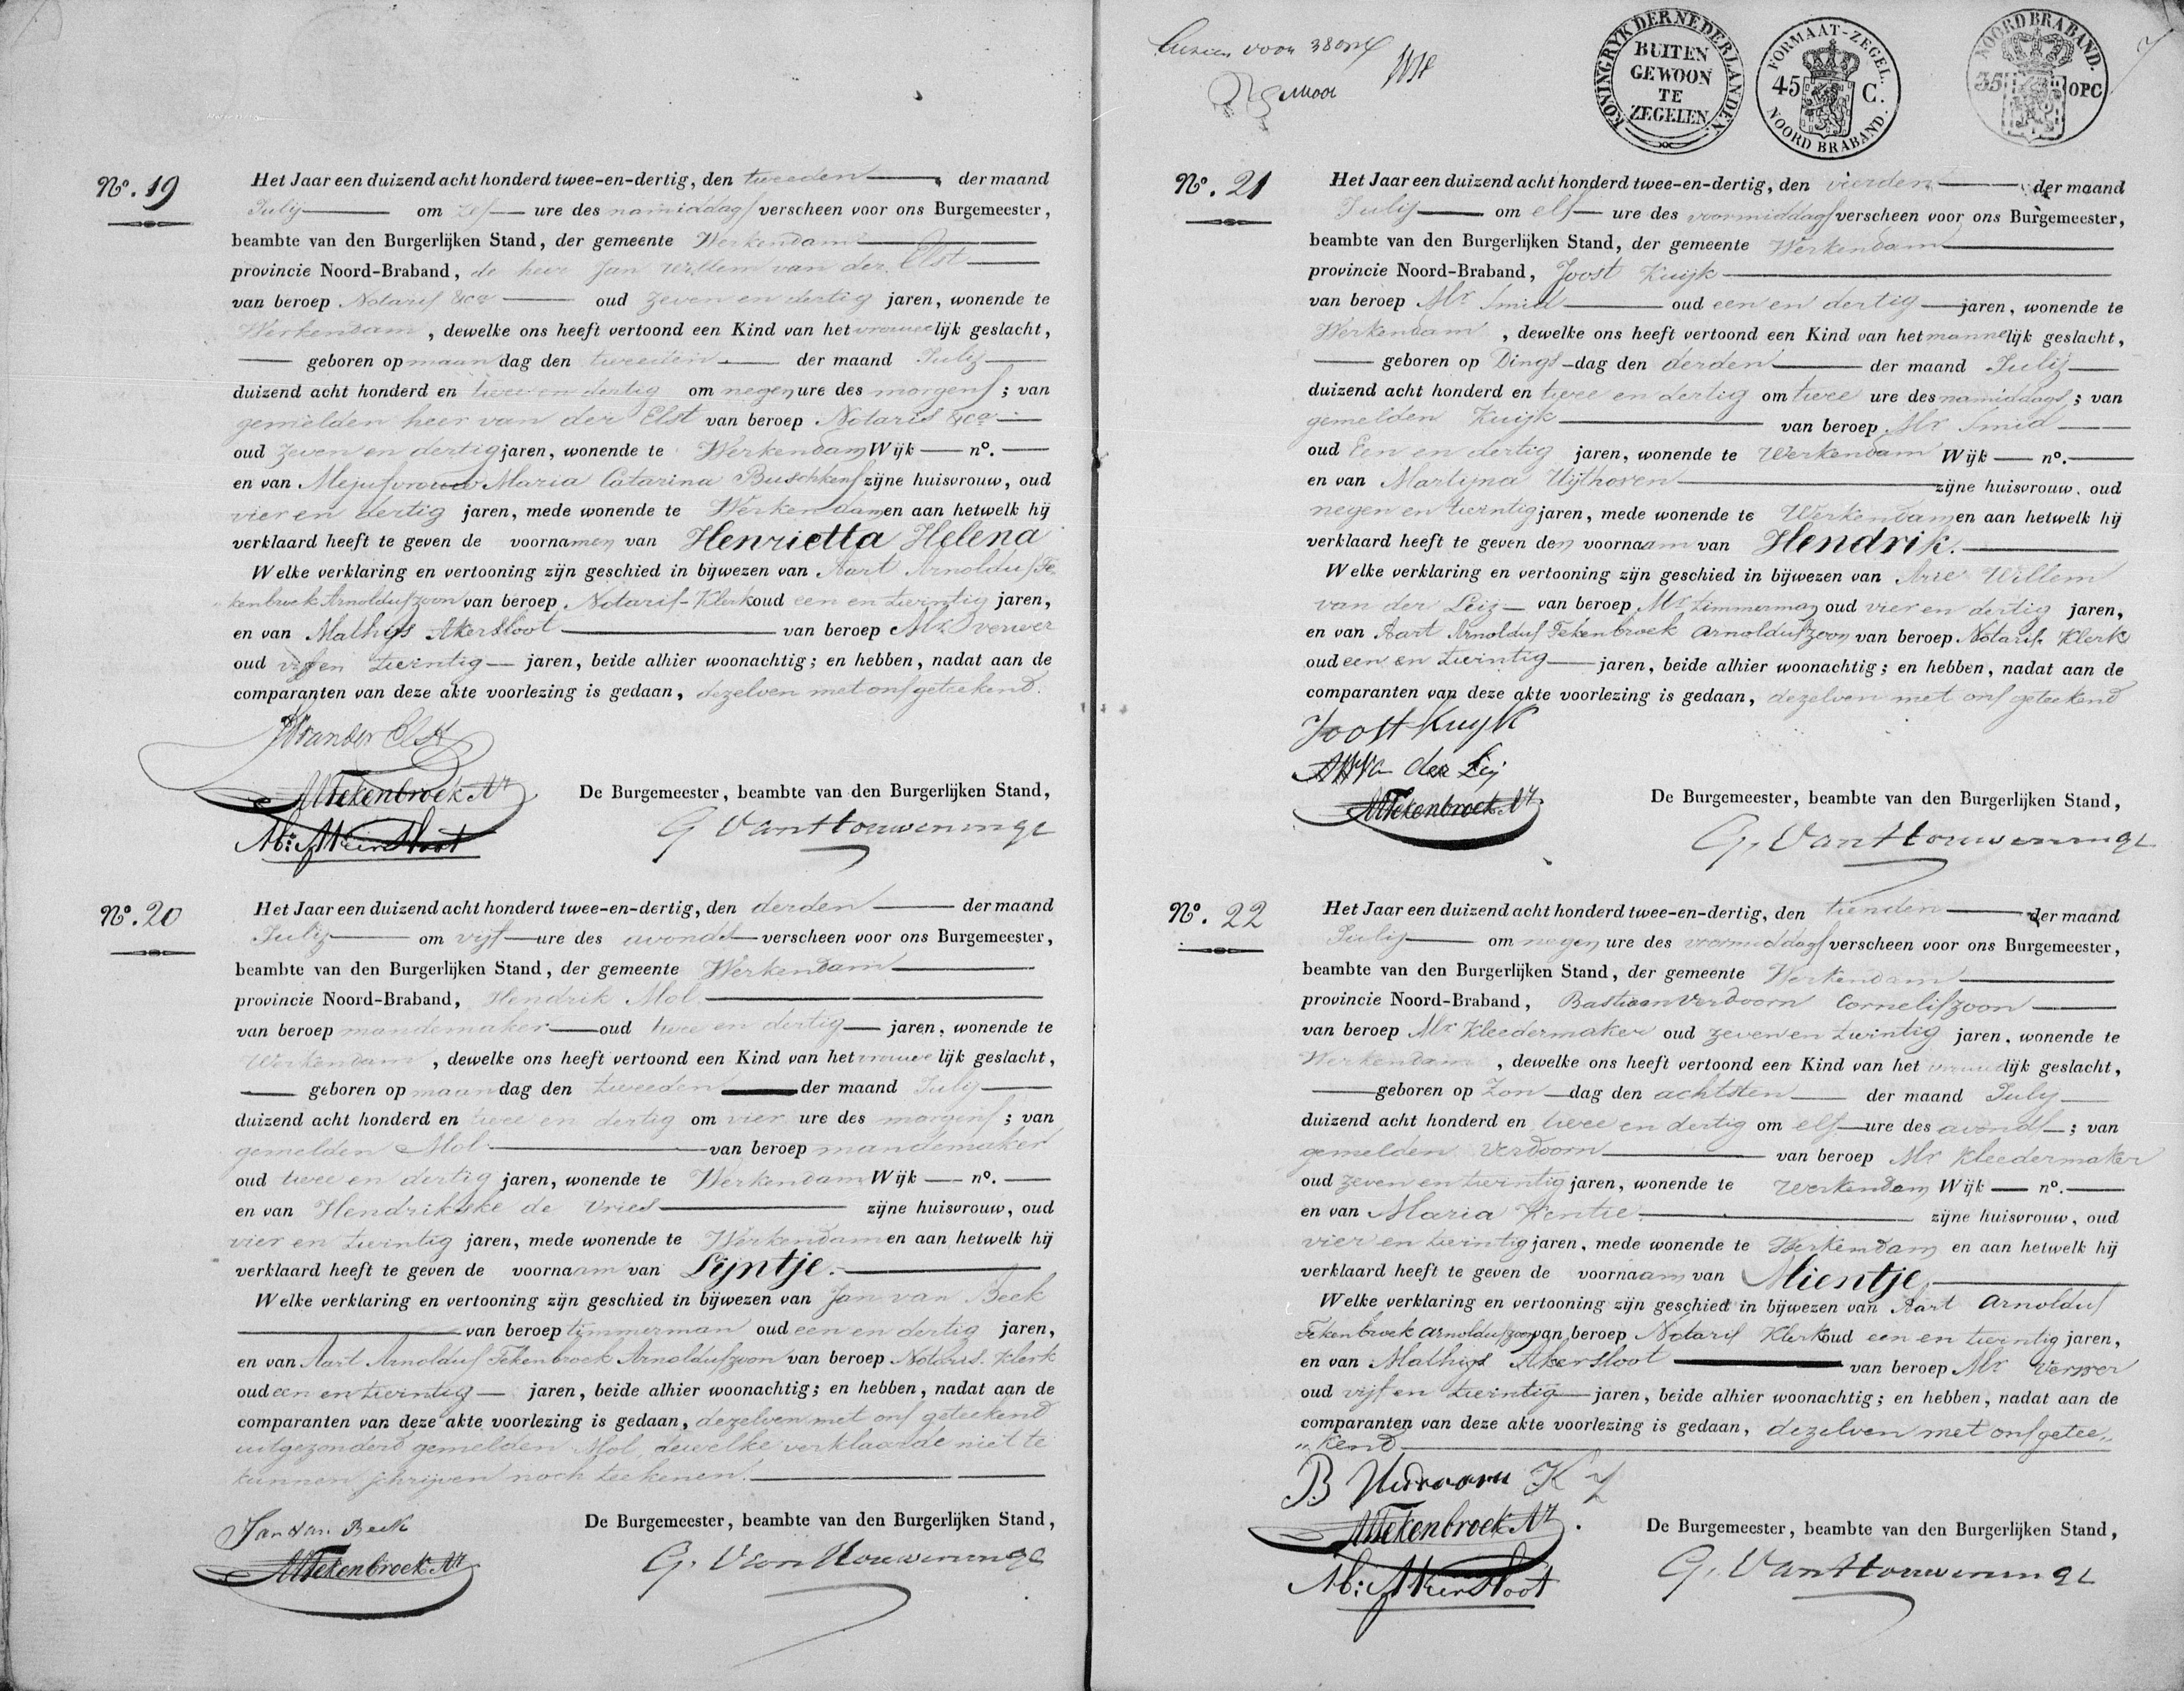 Nº. 19
Het Jaar een duizend acht honderd twee-en-dertig, den tweeden der maand
Julij om zes ure des namiddags verscheen voor ons Burgemeester,
beambte van den Burgerlijken Stand, der gemeente Werkendam
provincie Noord-Braband, de heer Jan Willem van der Elst
van beroep Notaris &ca oud zeven en dertig jaren, wonende te
Werkendam, dewelke ons heeft vertoond een Kind van het vrouwelijk geslacht,
geboren op maandag den tweeden der maand Julij
duizend acht honderd en twee en dertig om negen ure des morgens; van
gemelden heer van der Elst van beroep Notaris &ca
oud zeven en dertig jaren, wonende te Werkendam Wijk nº.
en van Mejufvrouw Maria Catarina Buschkens zijne huisvrouw, oud
vier en dertig jaren, mede wonende te Werkendam en aan hetwelk hij
verklaard heeft te geven de voornamen van Henrietta Helena
Welke verklaring en vertooning zijn geschied in bijwezen van Aart Arnoldus Te-
kenbroek Arnolduszoon van beroep Notaris-Klerk oud een en twintig jaren,
en van Mathijs Akersloot van beroep Mr. verwer
oud vijf en twintig jaren, beide alhier woonachtig; en hebben, nadat aan de
comparanten van deze akte voorlezing is gedaan, dezelven met ons geteekend.
JW van der Elst
AATekenbroek Az
De Burgemeester, beambte van den Burgerlijken Stand,
M: Akersloot
G Van Houweninge
Nº. 20
Het Jaar een duizend acht honderd twee-en-dertig, den derden der maand
Julij om vijf ure des avonds verscheen voor ons Burgemeester,
beambte van den Burgerlijken Stand, der gemeente Werkendam
provincie Noord-Braband, Hendrik Mol
van beroep mandemaker oud twee en dertig jaren, wonende te
Werkendam, dewelke ons heeft vertoond een Kind van het vrouwelijk geslacht,
geboren op maandag den tweeden der maand July
duizend acht honderd en twee en dertig om vier ure des morgens; van
gemelden Mol van beroep mandemaker
oud twee en dertig jaren, wonende te Werkendam Wijk nº.
en van Hendrikske de Vries zijne huisvrouw, oud
vier en twintig jaren, mede wonende te Werkendam en aan hetwelk hij
verklaard heeft te geven de voornaam van Lijntje.
Welke verklaring en vertooning zijn geschied in bijwezen van Jan van Beek
van beroep timmerman oud een en dertig jaren,
en van Aart Arnoldus Tekenbroek Arnolduszoon van beroep Notaris. Klerk
oud een en twintig jaren, beide alhier woonachtig; en hebben, nadat aan de
comparanten van deze akte voorlezing is gedaan, dezelven met ons geteekend
uitgezonderd gemelden Mol, dewelke verklaarde niet te
kunnen schrijven noch teekenen.
Jan van Beek
De Burgemeester, beambte van den Burgerlijken Stand,
AATekenbroek Az
G. Van Houweninge
KONINGRYK DER NEDERLANDEN.
BUITEN
GEWOON
TE
ZEGELEN
FORMAAT-ZEGEL.
45 C.
NOORD BRABAND.
NOORD BRABAND.
35 OPC
Nº. 21
Het Jaar een duizend acht honderd twee-en-dertig, den vierden der maand
Julij om elf ure des voormiddags verscheen voor ons Burgemeester,
beambte van den Burgerlijken Stand, der gemeente Werkendam
provincie Noord-Braband, Joost Kuijk
van beroep Mr Smid oud een en dertig jaren, wonende te
Werkendam, dewelke ons heeft vertoond een Kind van het mannelijk geslacht,
geboren op Dings-dag den derden der maand Julij
duizend acht honderd en twee en dertig om twee ure des namiddags; van
gemelden Kuijk van beroep Mr Smid
oud Een en dertig jaren, wonende te Werkendam Wijk nº.
en van Martijna Uijthoven zijne huisvrouw, oud
negen en twintig jaren, mede wonende te Werkendam en aan hetwelk hij
verklaard heeft te geven den voornaam van Hendrik.
Welke verklaring en vertooning zijn geschied in bijwezen van Arie Willem
van der Leij van beroep Mr timmerman oud vier en dertig jaren,
en van Aart Arnoldus Tekenbroek Arnolduszoon van beroep Notaris. Klerk
oud een en twintig jaren, beide alhier woonachtig; en hebben, nadat aan de
comparanten van deze akte voorlezing is gedaan, dezelven met ons geteekend
Joost Kuijk
AW Van der Leij
De Burgemeester, beambte van den Burgerlijken Stand,
AATekenbroek Az
G. Van Houweninge
Nº. 22
Het Jaar een duizend acht honderd twee-en-dertig, den tienden der maand
Julij om negen ure des voormiddags verscheen voor ons Burgemeester,
beambte van den Burgerlijken Stand, der gemeente Werkendam
provincie Noord-Braband, Bastiaan Verdoorn Corneliszoon
van beroep Mr Kleedermaker oud zeven en twintig jaren, wonende te
Werkendam, dewelke ons heeft vertoond een Kind van het vrouwelijk geslacht,
geboren op Zon-dag den achtsten der maand July
duizend acht honderd en twee en dertig om elf ure des avonds; van
gemelden Verdoorn van beroep Mr Kleedermaker
oud zeven en twintig jaren, wonende te Werkendam Wijk nº.
en van Maria Kentie zijne huisvrouw, oud
vier en twintig jaren, mede wonende te Werkendam en aan hetwelk hij
verklaard heeft te geven de voornaam van Mientje
Welke verklaring en vertooning zijn geschied in bijwezen van Aart Arnoldus
Tekenbroek Arnolduszoon van beroep Notaris Klerk oud een en twintig jaren,
en van Mathijs Akersloot van beroep Mr Verwer
oud vijf en twintig jaren, beide alhier woonachtig; en hebben, nadat aan de
comparanten van deze akte voorlezing is gedaan, dezelven met ons getee„
„kend
B Verdoorn K Z
AATekenbroek Az.
De Burgemeester, beambte van den Burgerlijken Stand,
M: Akersloot
G. Van Houweninge